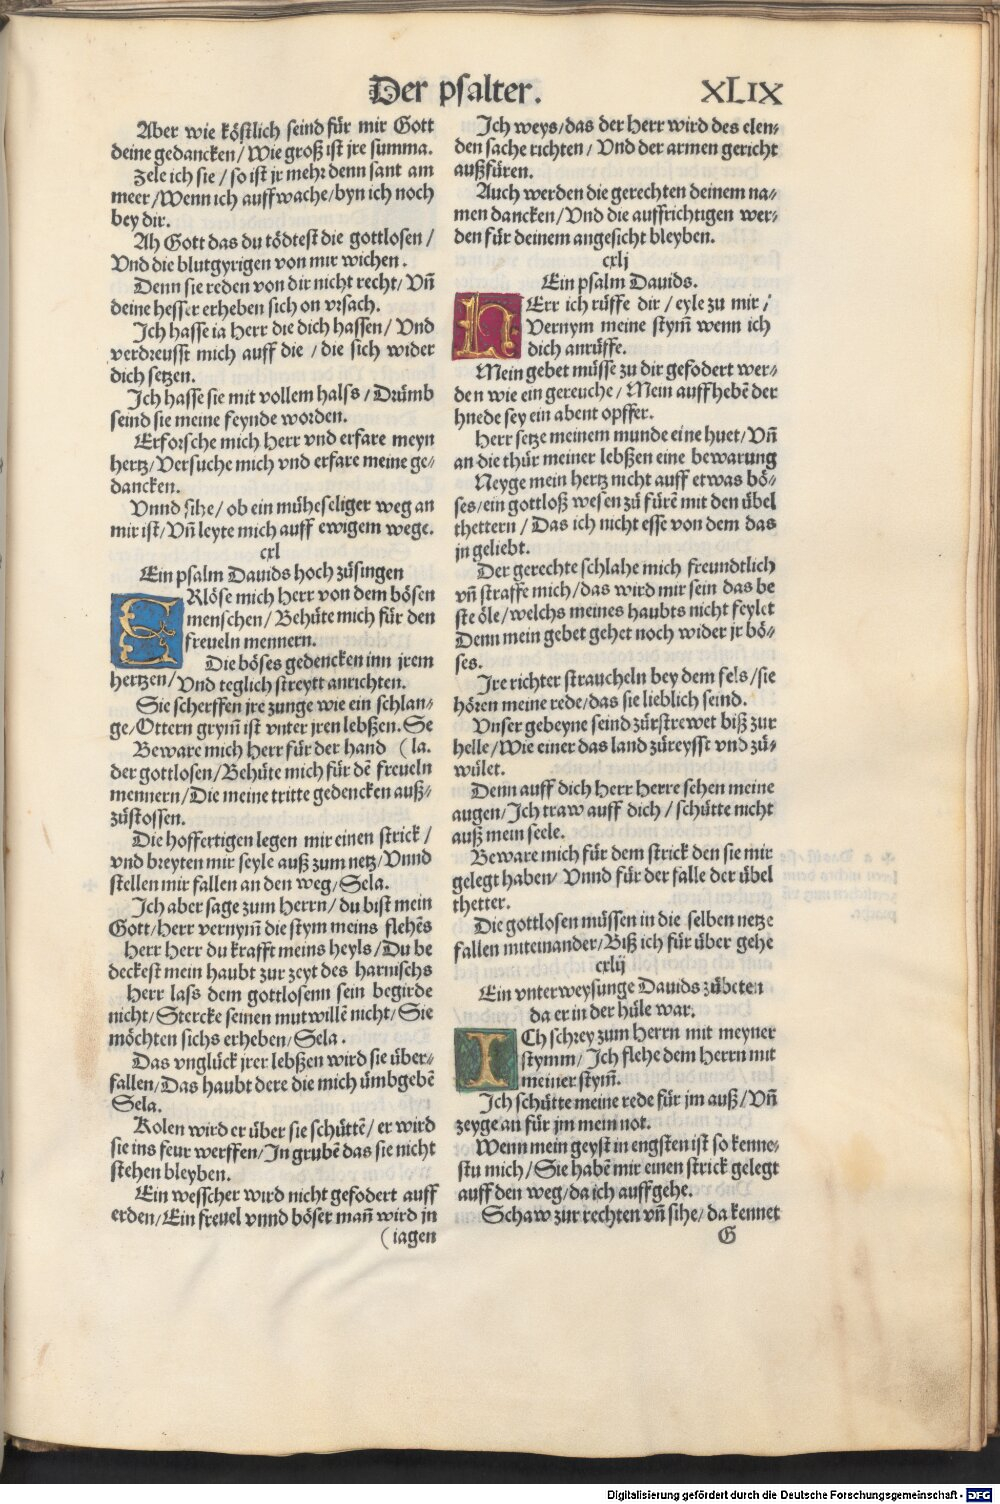 Der psalter.
XLIX
Aber wie köstlich seind für mir Gott
deine gedancken/Wie groß ist jre summa.
Zele ich sie/so ist jr mehr denn sant am
meer/Wenn ich auffwache/byn ich noch
bey dir.
Ah Gott das du tödtest die gottlosen/
Vnd die blutgyrigen von mir wichen.
Denn sie reden von dir nicht recht/Vñ
deine hesser erheben sich on vrsach.
Ich hasse ia Herr die dich hassen/Vnd
verdreusst mich auff die/die sich wider
dich setzen.
Ich hasse sie mit vollem halss/Drümb
seind sie meine feynde worden.
Erforsche mich Herr vnd erfare meyn
hertz/Versuche mich vnd erfare meine ge⸗
dancken.
Vnnd sihe/ob ein müheseliger weg an
mir ist/Vñ leyte mich auff ewigem wege.
cxl
Ein psalm Dauids hoch züsingen
ERlöse mich Herr von dem bösen
menschen/Behüte mich für den
freueln mennern.
Die böses gedencken inn jrem
hertzen/Vnd teglich streytt anrichten.
Sie scherffen jre zunge wie ein schlan⸗
ge/Ottern grym̃ ist vnter jren lebßen.Se
Beware mich Herr für der hand (la.
der gottlosen/Behüte mich für dẽ freueln
mennern/Die meine tritte gedencken auß⸗
züstossen.
Die hoffertigen legen mir einen strick/
vnd breyten mir seyle auß zum netz/Vnnd
stellen mir fallen an den weg/Sela.
Ich aber sage zum Herrn/du bist mein
Gott/Herr vernym̃ die stym meins flehẽs
Herr Herr du krafft meins heyls/Du be
deckest mein haubt zur zeyt des harnischs
Herr lass dem gottlosenn sein begirde
nicht/Stercke seinen mutwillẽ nicht/Sie
möchten sichs erheben/Sela.
Das vnglück jrer lebßen wird sie über⸗
fallen/Das haubt dere die mich ümbgebẽ
Sela.
Kolen wird er über sie schüttẽ/er wird
sie ins feur werffen/In grubẽ das sie nicht
stehen bleyben.
Ein wesscher wird nicht gefodert auff
erden/Ein freuel vnnd böser mañ wird jn
(iagen
Ich weys/das der Herr wird des elen⸗
den sache richten/Vnd der armen gericht
außfüren.
Auch werden die gerechten deinem na⸗
men dancken/Vnd die auffrichtigen wer⸗
den für deinem angesicht bleyben.
cxlj
Ein psalm Dauids.
HErr ich rüffe dir/eyle zu mir/
Vernym meine stym̃ wenn ich
dich anrüffe.
Mein gebet müsse zu dir gefodert wer⸗
den wie ein gereuche/Mein auffhebẽ der
hnede sey ein abent opffer.
Herr setze meinem munde eine huet/Vñ
an die thür meiner lebßen eine bewarung
Neyge mein hertz nicht auff etwas bö⸗
ses/ein gottloß wesen zü fürẽ mit den übel
thettern/Das ich nicht esse von dem das
jn geliebt.
Der gerechte schlahe mich freundtlich
vñ straffe mich/das wird mir sein das be
ste öle/welchs meines haubts nicht feylet
Denn mein gebet gehet noch wider jr bö⸗
ses.
Jre richter straucheln bey dem fels/sie
hören meine rede/das sie lieblich seind.
Vnser gebeyne seind zürstrewet biß zur
helle/Wie einer das land züreysst vnd zü⸗
wület.
Denn auff dich Herr Herre sehen meine
augen/Ich traw auff dich/schütte nicht
auß mein seele.
Beware mich für dem strick den sie mir
gelegt haben/Vnnd für der falle der übel
thetter.
Die gottlosen müssen in die selben netze
fallen miteinander/Biß ich für über gehe
cxlij
Ein vnterweysunge Dauids zübeten
da er in der hüle war.
ICh schrey zum Herrn mit meyner
stymm/Ich flehe dem Herrn mit
meiner stym̃.
Ich schütte meine rede für jm auß/Vñ
zeyge an für jm mein not.
Wenn mein geyst in engsten ist so kenne⸗
stu mich/Sie habẽ mir einen strick gelegt
auff den weg/da ich auffgehe.
Schaw zur rechten vñ sihe/da kennet
G
Digitalisierung gefördert durch die Deutsche Forschungsgemeinschaft - DFG